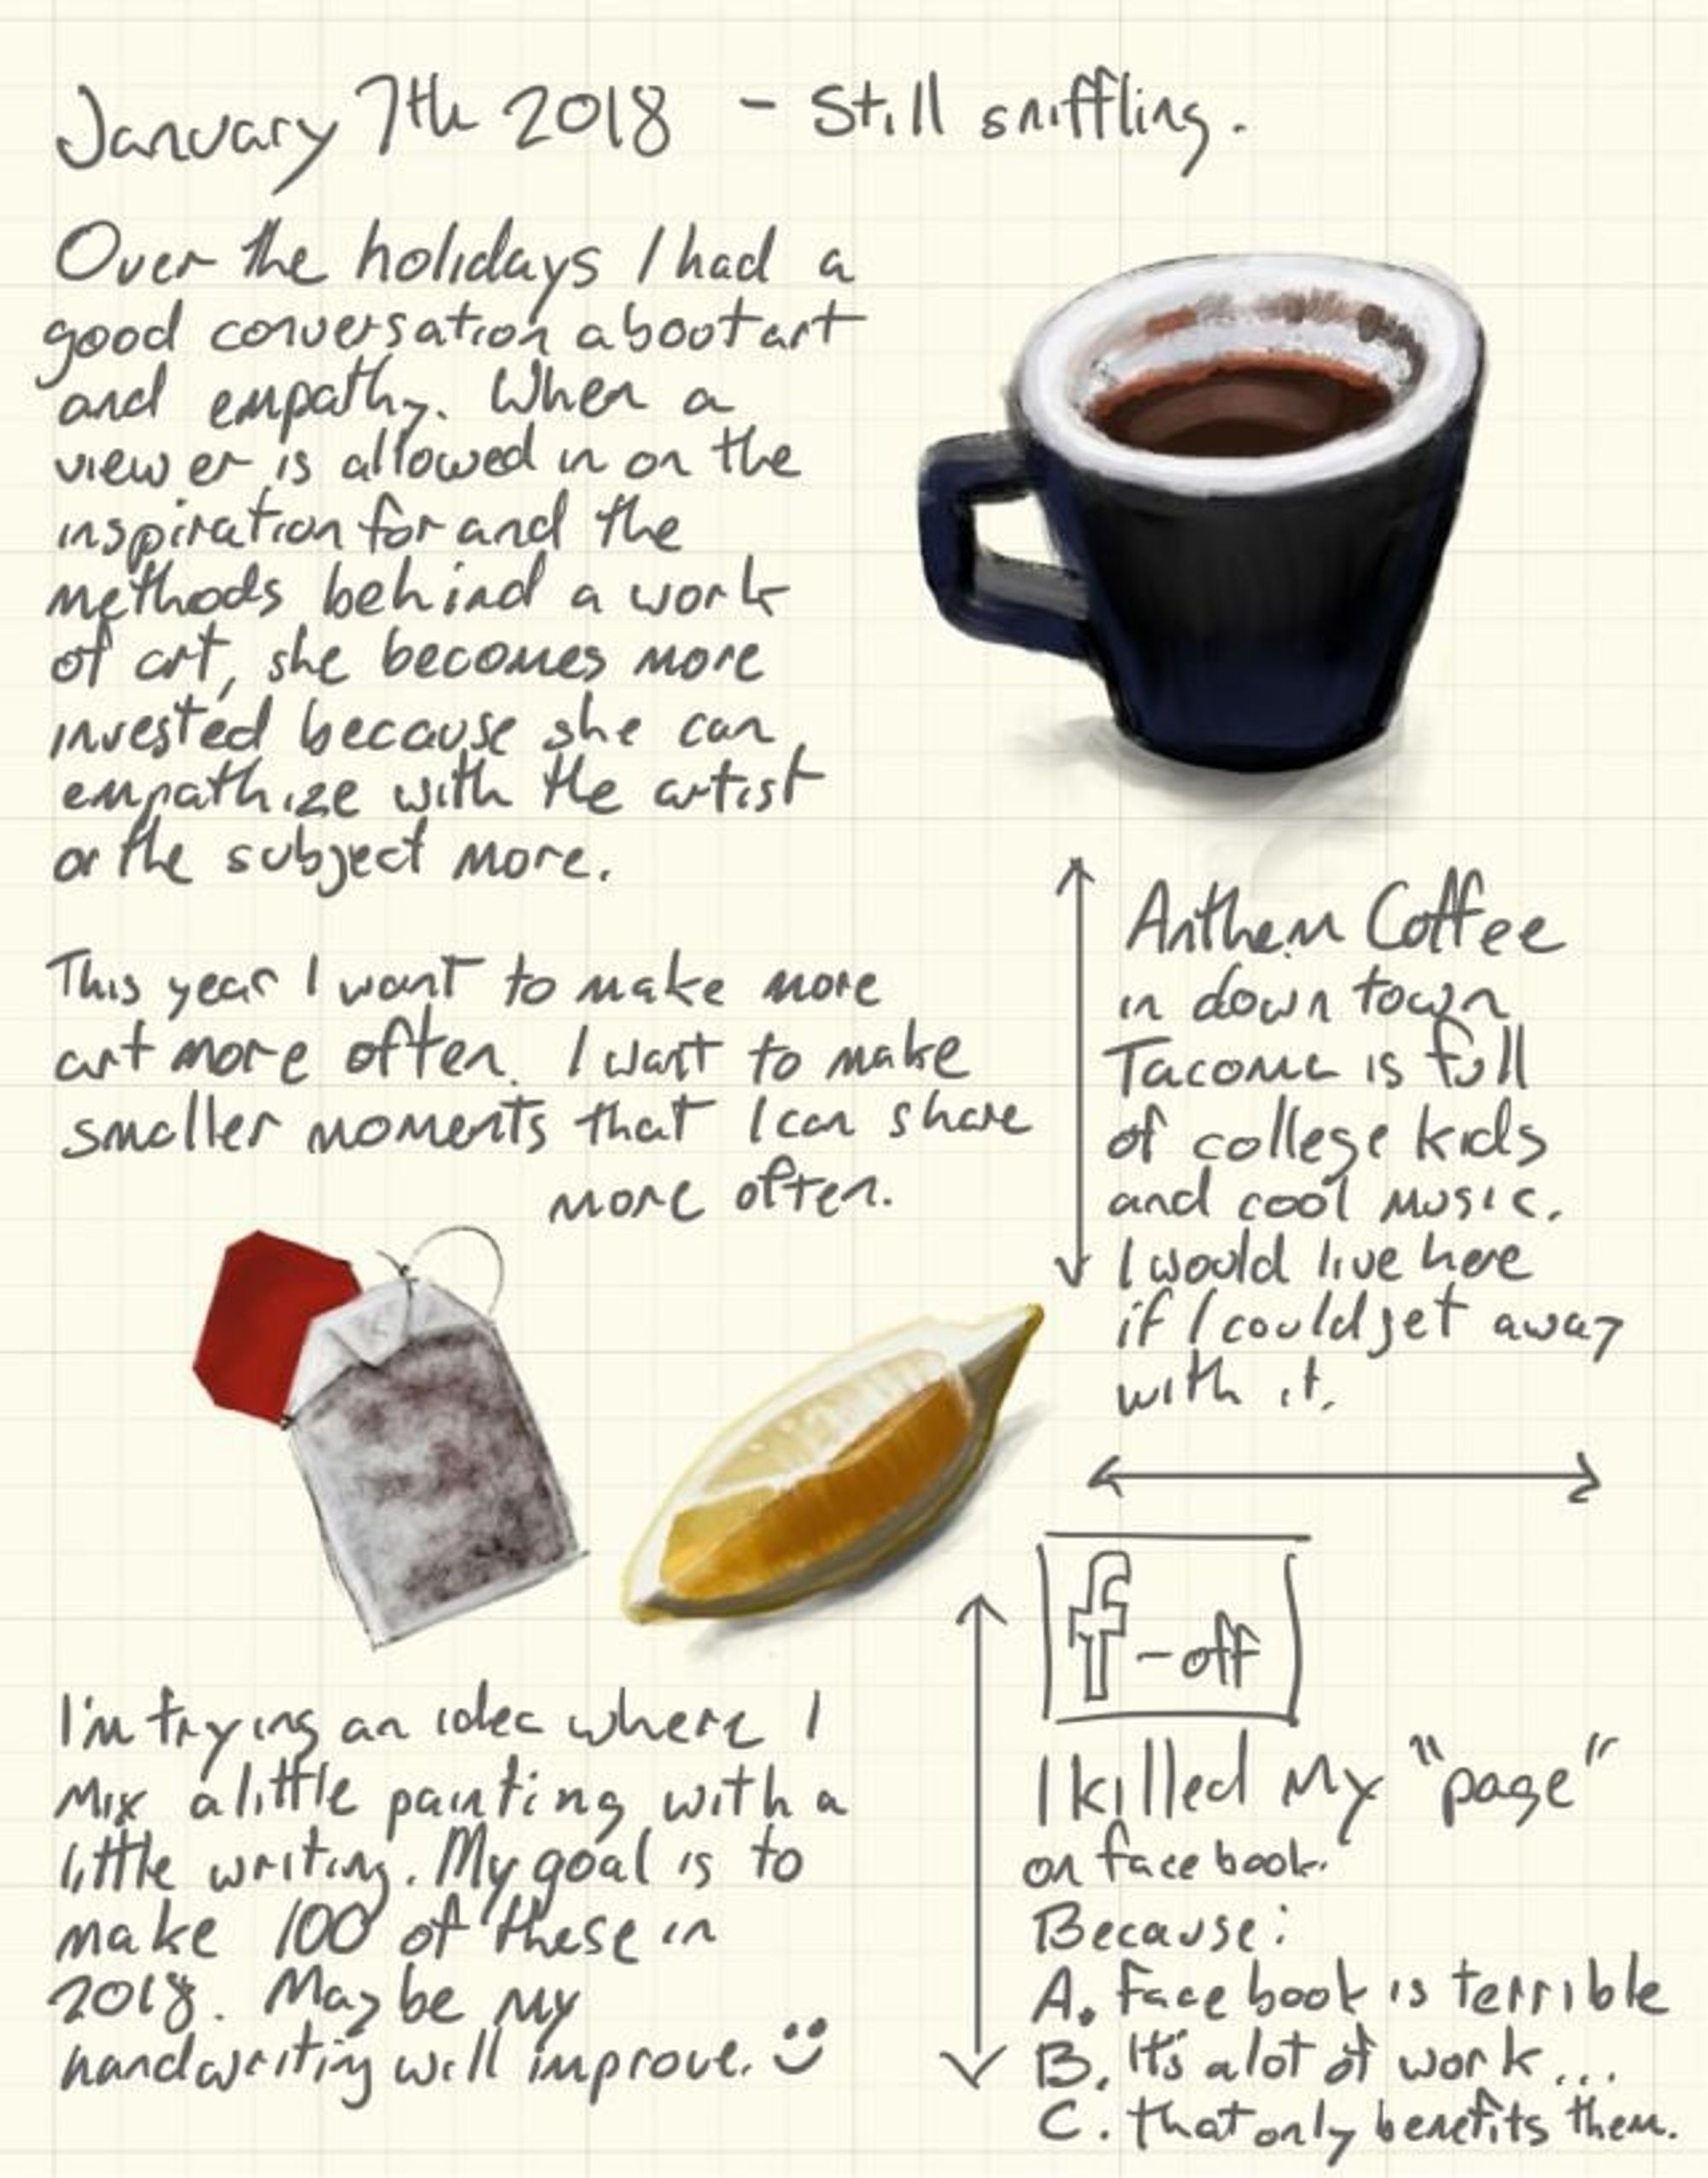 January 7th 2018 - Still sniffling.
Over the holidays I had a
good conversation about art
and empathy. When a
viewer is allowed in on the
inspiration for and the
methods behind a work
of art, she becomes more
invested because she can
empathize with the artist
or the subject more.
This year I want to make more
art more often. I want to make
smaller moments that I can share
more often.
Anthem Coffee
in downtown
Tacoma is full
of college kids
and cool music.
I would live here
if I could get away
with it.
I'm trying an idea where I
mix a little painting with a
little writing. My goal is to
make 100 of these in
2018. Maybe my
handwriting will improve. :)
f-off
I killed my "page"
on facebook.
Because:
A. Facebook is terrible
B. It's a lot of work...
C. that only benefits them.